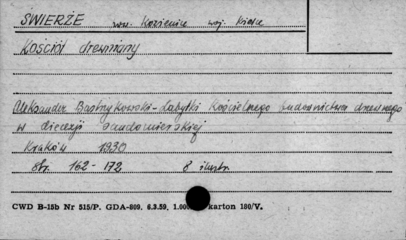 ŚWIERZE pow. Kozienice woj. Kielce
Kościół drewniany
Aleksander Bastrzykowski - Zabytki Kościelnego budownictwa drzewnego
w diecezji sandomierskiej
Kraków 1930
str. 162-172 8 ilustr.
CWD B-15b Nr 515/P. GDA-809. 6.3.59. 1.000 karton 180/V.